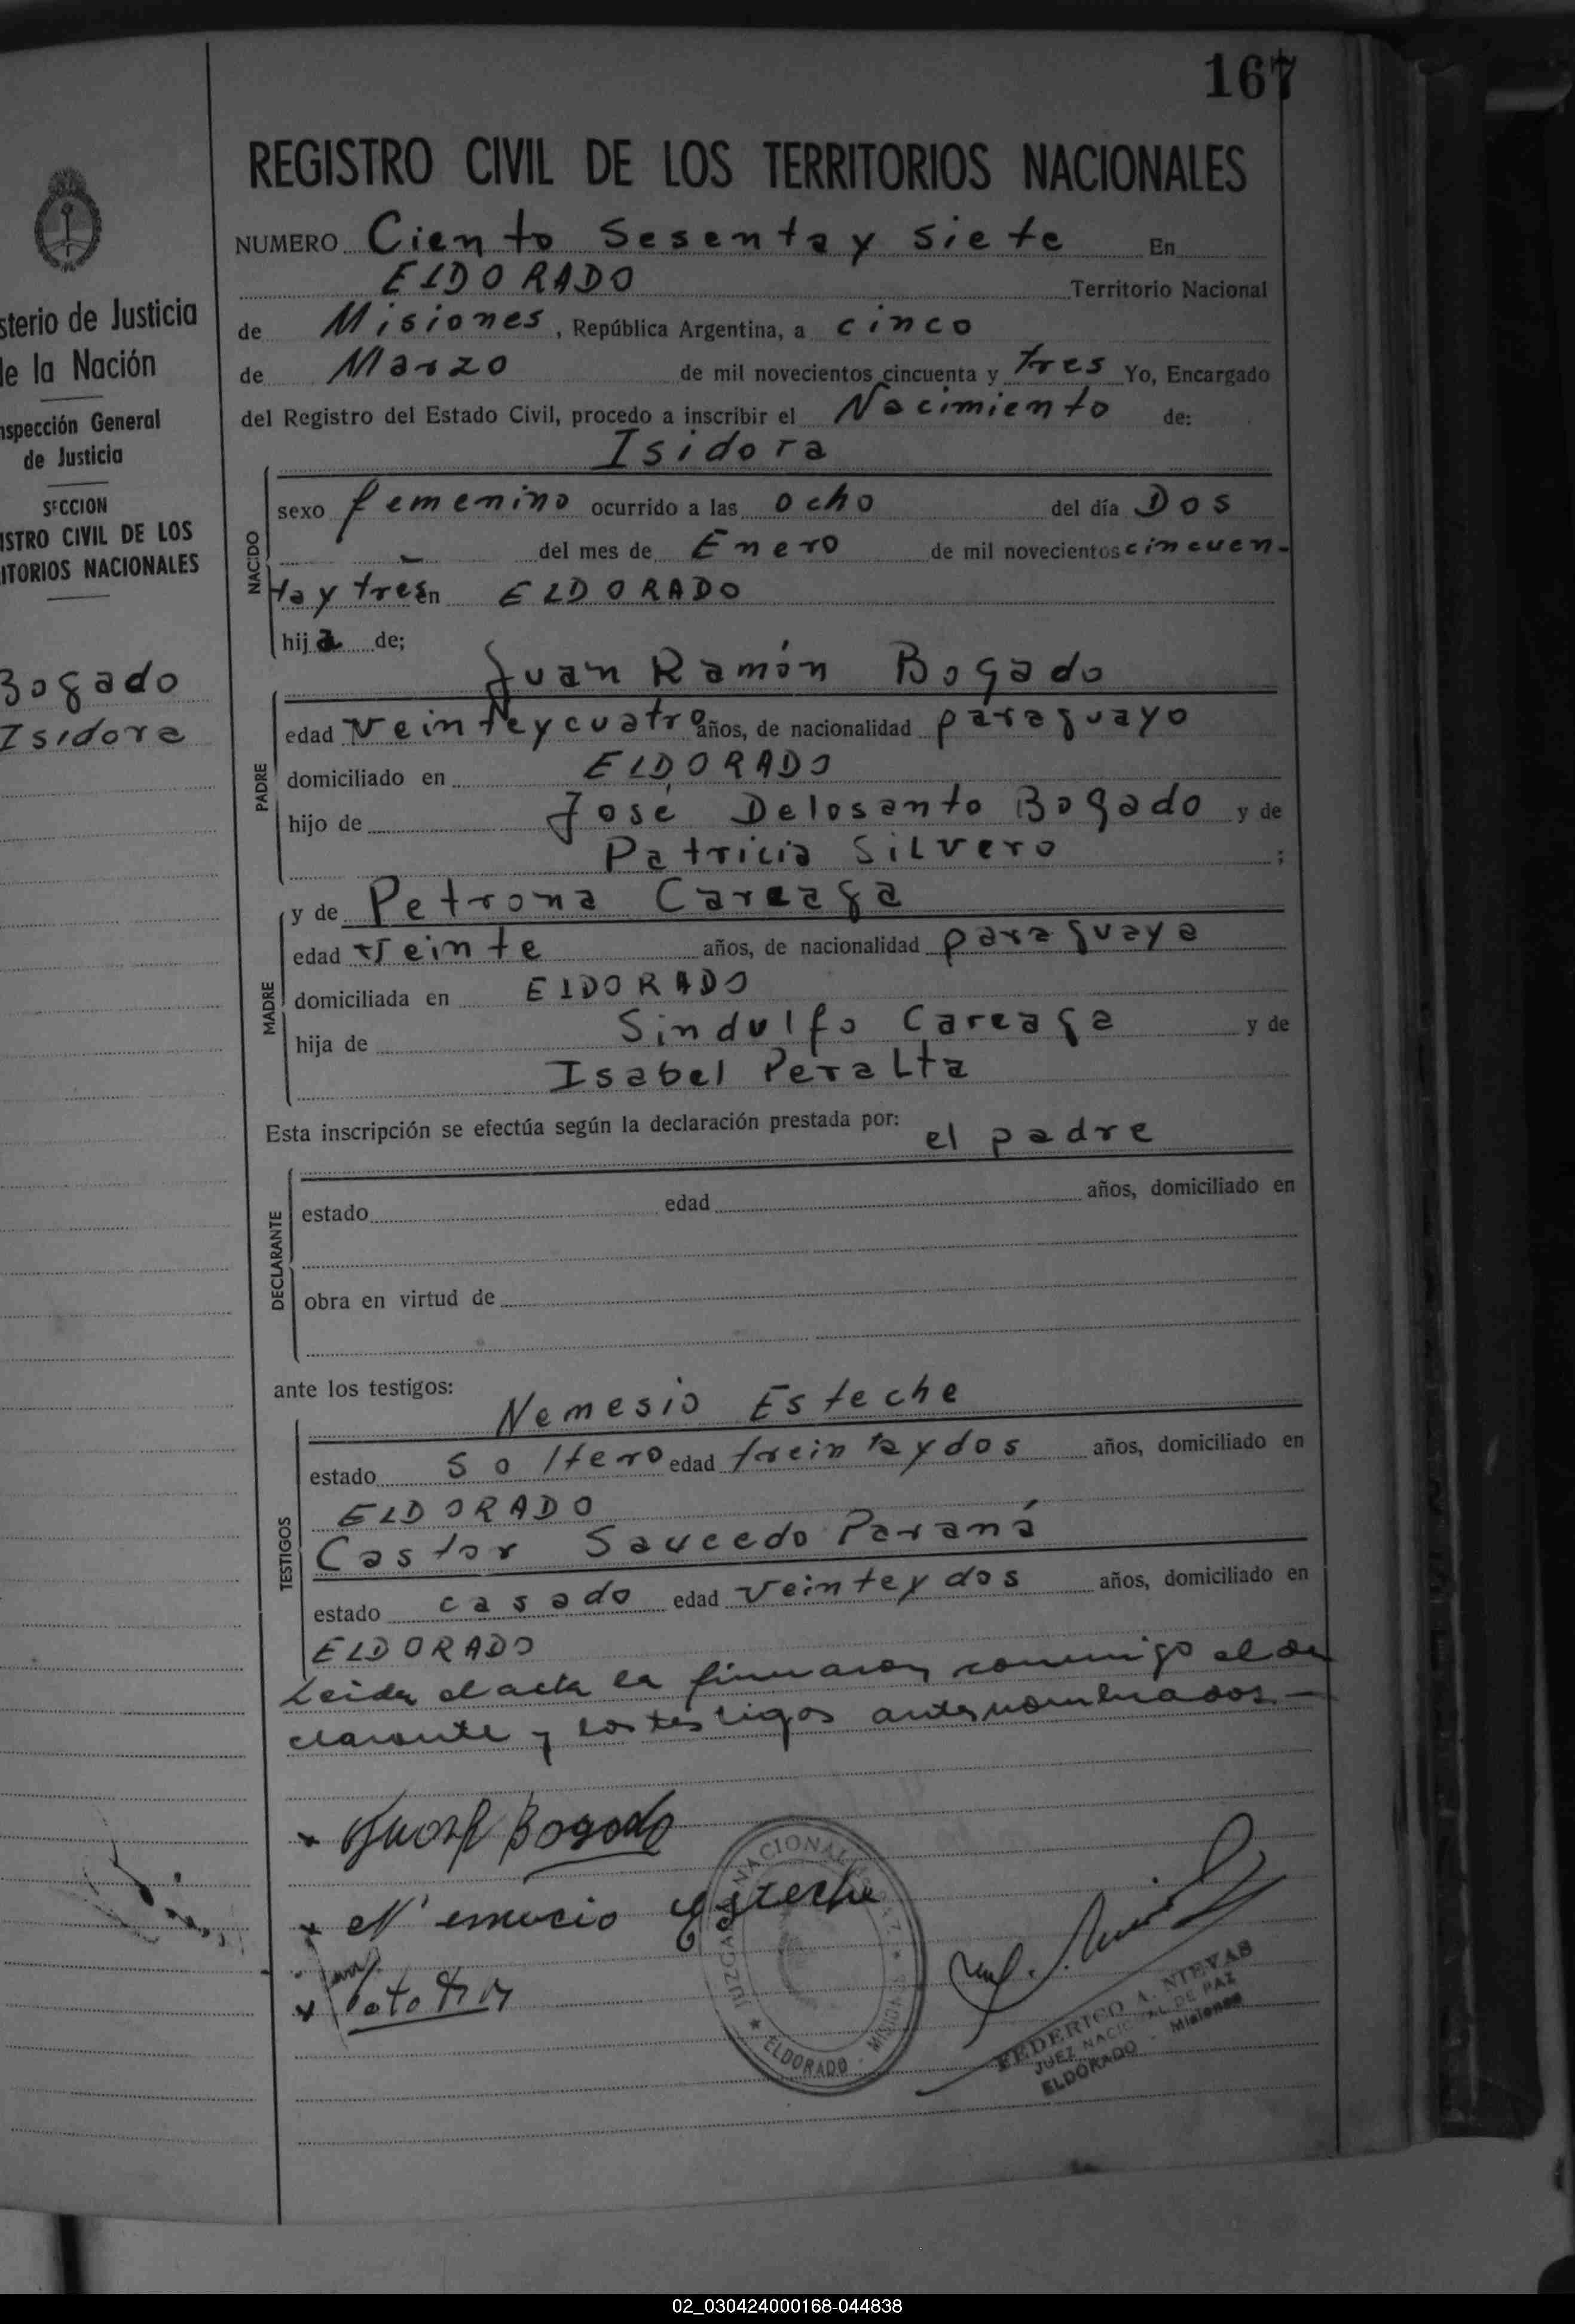 167
REGISTRO CIVIL DE LOS TERRITORIOS NACIONALES
NUMERO Ciento Sesenta y siete En
ELDORADO Territorio Nacional
de Misiones, República Argentina, a cinco
de Marzo de mil novecientos cincuenta y tres Yo, Encargado
del Registro del Estado Civil, procedo a inscribir el Nacimiento de:
Isidora
NACIDO
sexo femenino ocurrido a las ocho del día Dos
— del mes de Enero de mil novecientos cincuen-
ta y tres en ELDORADO
hija de;
Juan Ramón Bogado
PADRE
edad veinte y cuatro años, de nacionalidad paraguayo
domiciliado en ELDORADO
hijo de José Delosanto Bogado y de
Patricia Silvero ;
y de Petrona Careaga
MADRE
edad veinte años, de nacionalidad paraguaya
domiciliada en ELDORADO
hija de Sindulfo Careaga y de
Isabel Peralta
Esta inscripción se efectúa según la declaración prestada por: el padre
DECLARANTE
estado edad años, domiciliado en
obra en virtud de
ante los testigos:
Nemesio Esteche
TESTIGOS
estado soltero edad treinta y dos años, domiciliado en
ELDORADO
Castor Saucedo Paraná
estado casado edad veinte y dos años, domiciliado en
ELDORADO
Leida el acta la firmaron conmigo el de
clarante y los testigos antes nombrados.—
Bogado
Esteche
JUZGADO NACIONAL DE PAZ
ELDORADO - MISIONES
FEDERICO A. NIEVAS
JUEZ NACIONAL DE PAZ
ELDORADO - Misiones
sterio de Justicia
de la Nación
nspección General
de Justicia
SECCION
ISTRO CIVIL DE LOS
ITORIOS NACIONALES
Bogado
Isidora
02_030424000168-044838